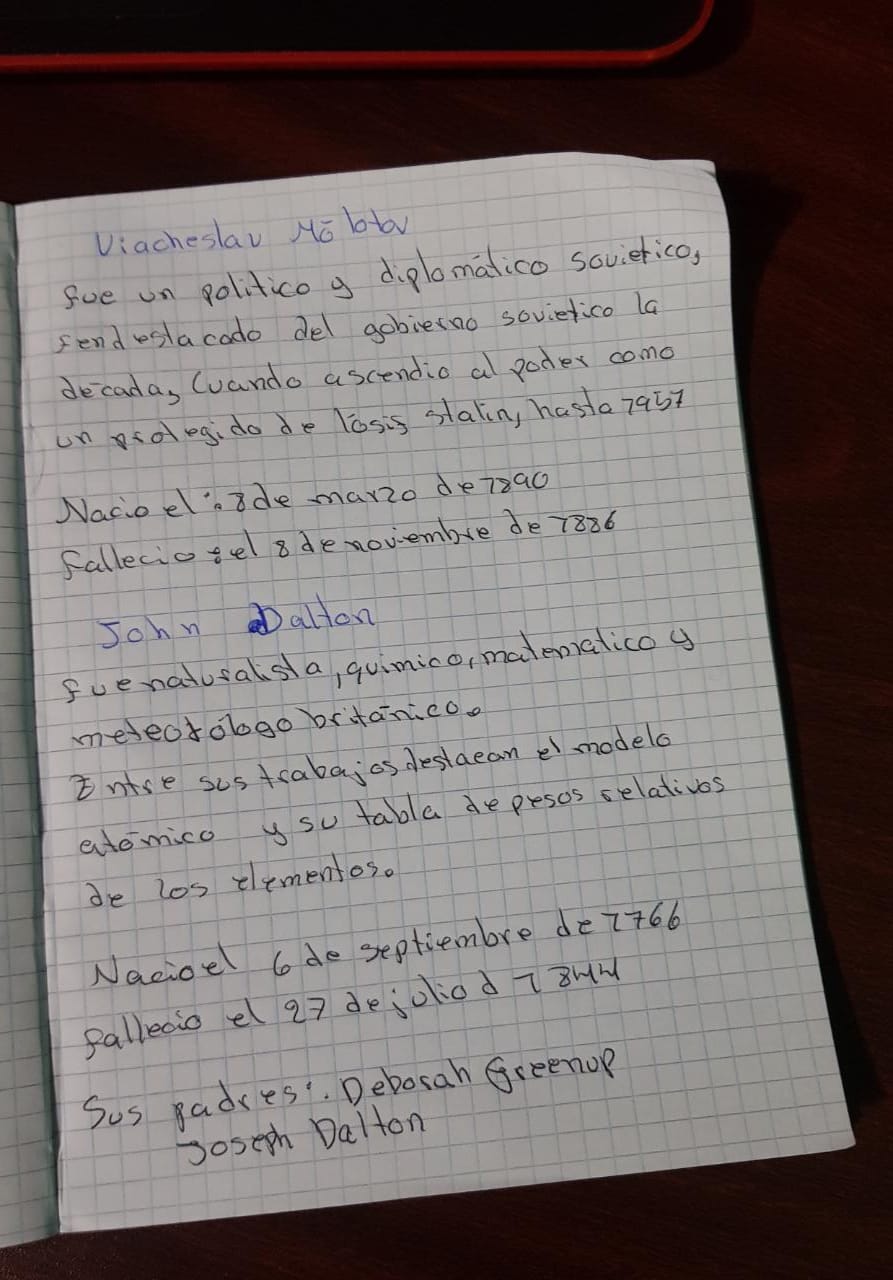 Viacheslav Mōlotov
fue un politico y diplomático sovietico,
fendestacado del gobierno sovietico la
decada, Cuando ascendio al poder como
un protegido de Iosis stalin, hasta 1957
Nacio el: 8 de marzo de 1890
fallecio: el 8 de noviembre de 1886
John Dalton
fue naturalista, quimico, matematico y
meteorólogo britanico.
Entre sus trabajos destacan el modelo
atómico y su tabla de pesos relativos
de los elementos.
Nacio el 6 de septiembre de 1766
fallecio el 27 de julio d 1844
Sus padres: Deborah Greenup
Joseph Dalton